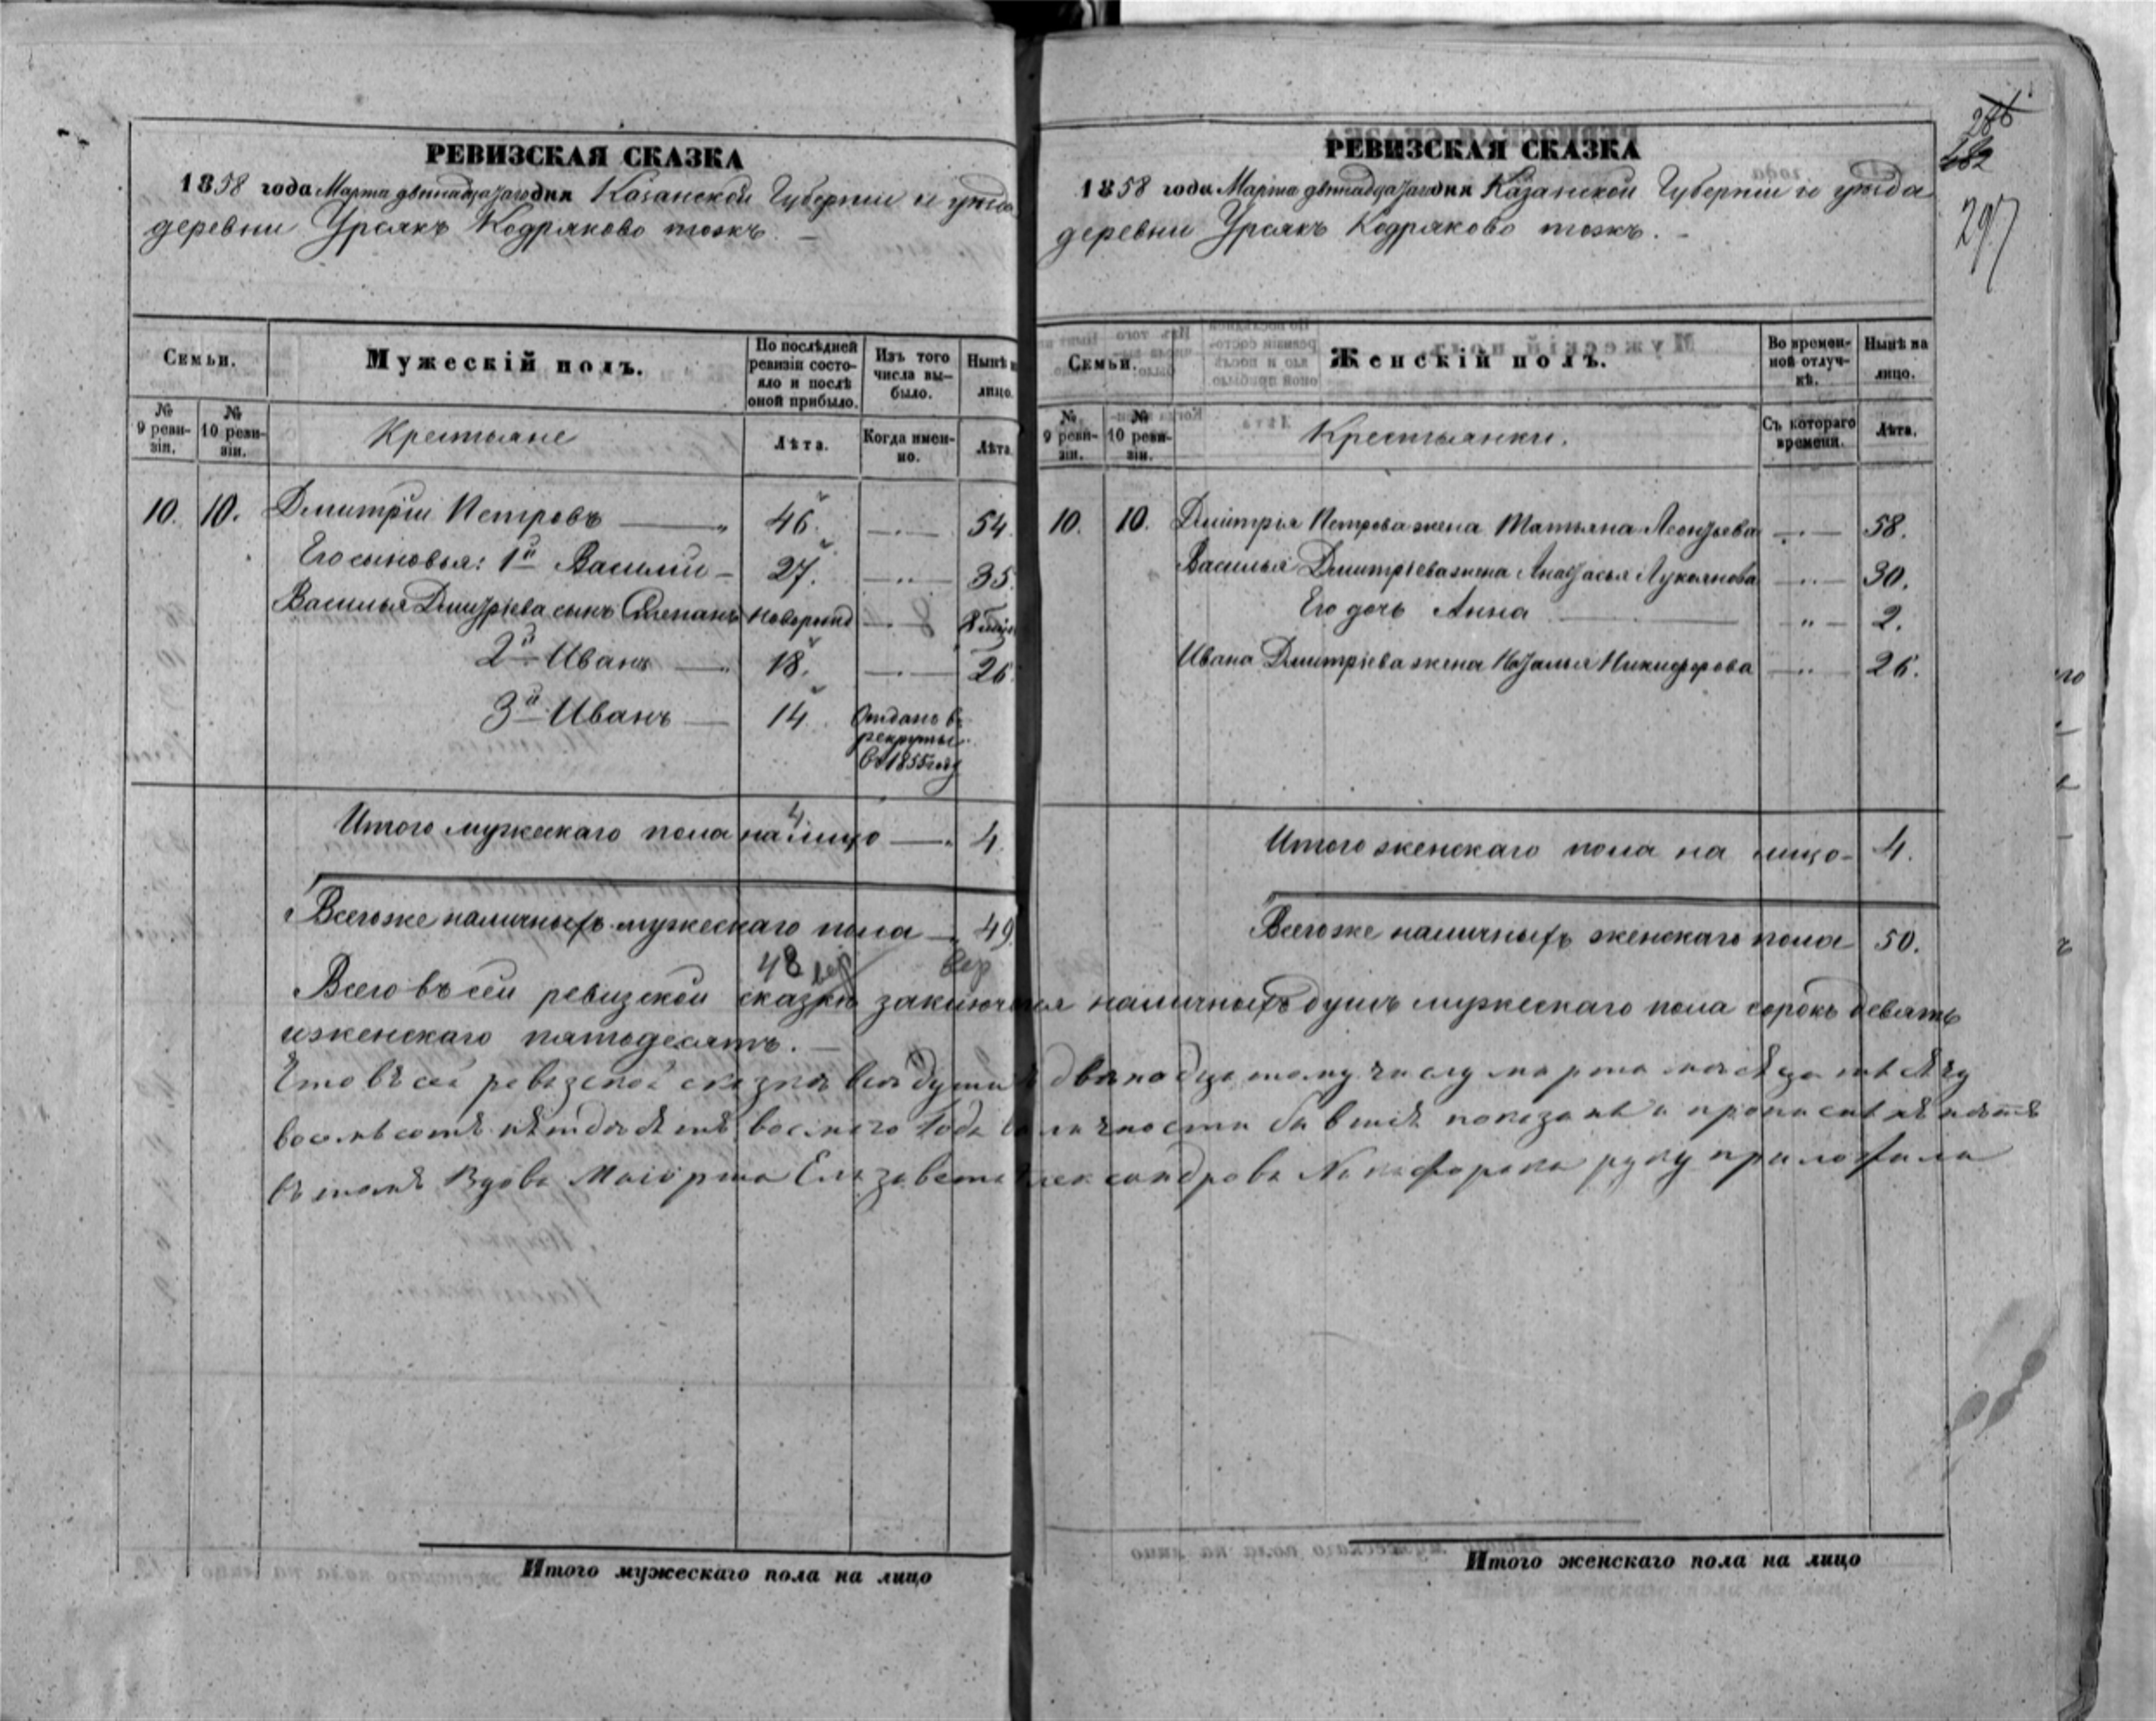 РЕВИЗСКАЯ СКАЗКА
1858 года Марта двенадцатаго дня Казанской Губерніи и уѣзда
деревни Урсякъ Кодряково тожъ.
Семьи.
Мужескій полъ.
По послѣдней ревизіи состояло и послѣ оной прибыло.
Изъ того числа выбыло.
Нынѣ на лицо.
№ 9 ревизіи.
№ 10 ревизіи.
Крестьяне
Лѣта.
Когда именно.
Лѣта
10. 10. Дмитрій Петровъ — 46. — 54.
Его сыновья: 1й Василій — 27. — 35.
Василья Дмитріева сынъ Степанъ новорожд — 8
2й Иванъ — 18. — 26.
3й Иванъ — 14. Отданъ въ
рекруты
въ 1855 году
4.
Итого мужескаго пола на лицо — 4.
Всего же наличныхъ мужескаго пола — 49.
48
Всего въ сей ревизской сказкѣ заключается наличныхъ душъ мужескаго пола сорокъ девять
и женскаго пятьдесятъ.
Что въ сей ревизской сказкѣ все души къ двѣнадцатому числу марта месѣца тысѣчу
восемьсотъ восмаго года въ личности бывшѣ показаны и
въ томъ Вдова Маіорша Елизавета Александрова руку приложила
Итого мужескаго пола на лицо
РЕВИЗСКАЯ СКАЗКА
286
682
297
1858 года Марта двенадцатаго дня Казанской Губерніи и уѣзда
деревни Урсякъ Кодряково тожъ.
Семьи.
Женскій полъ.
Во временной отлучкѣ.
Нынѣ на лицо.
№ 9 ревизіи.
№ 10 ревизіи.
Крестьянки.
Съ котораго времени.
Лѣта.
10. 10. Дмитрія Петрова жена Татьяна Леонтьева — 58.
Василья Дмитріева жена Анастасья Лукоянова — 30.
Его дочь Анна — 2.
Ивана Дмитріева жена Наталья Никифорова — 26.
Итого женскаго пола на лицо — 4.
Всего же наличныхъ женскаго пола 50.
Итого женскаго пола на лицо